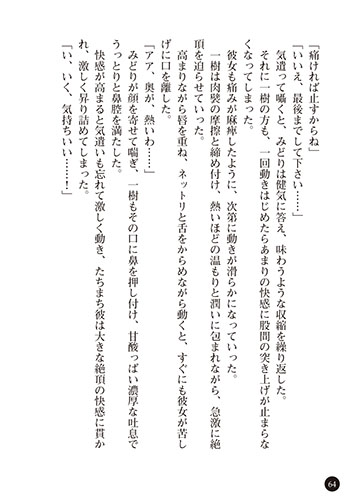 「痛ければ止すからね」
「いいえ、最後までして下さい……」
気遣って囁くと、みどりは健気に答え、味わうような収縮を繰り返した。
それに一樹の方も、一回動きはじめたらあまりの快感に股間の突き上げが止まらな
くなってしまった。
彼女も痛みが麻痺したように、次第に動きが滑らかになっていった。
一樹は肉襞の摩擦と締め付け、熱いほどの温もりと潤いに包まれながら、急激に絶
頂を迫らせていった。
高まりながら唇を重ね、ネットリと舌をからめながら動くと、すぐにも彼女が苦し
げに口を離した。
「アア、奥が、熱いわ……」
みどりが顔を寄せて喘ぎ、一樹もその口に鼻を押し付け、甘酸っぱい濃厚な吐息で
うっとりと鼻腔を満たした。
快感が高まると気遣いも忘れて激しく動き、たちまち彼は大きな絶頂の快感に貫か
れ、激しく昇り詰めてしまった。
「い、いく、気持ちいい……！」
64